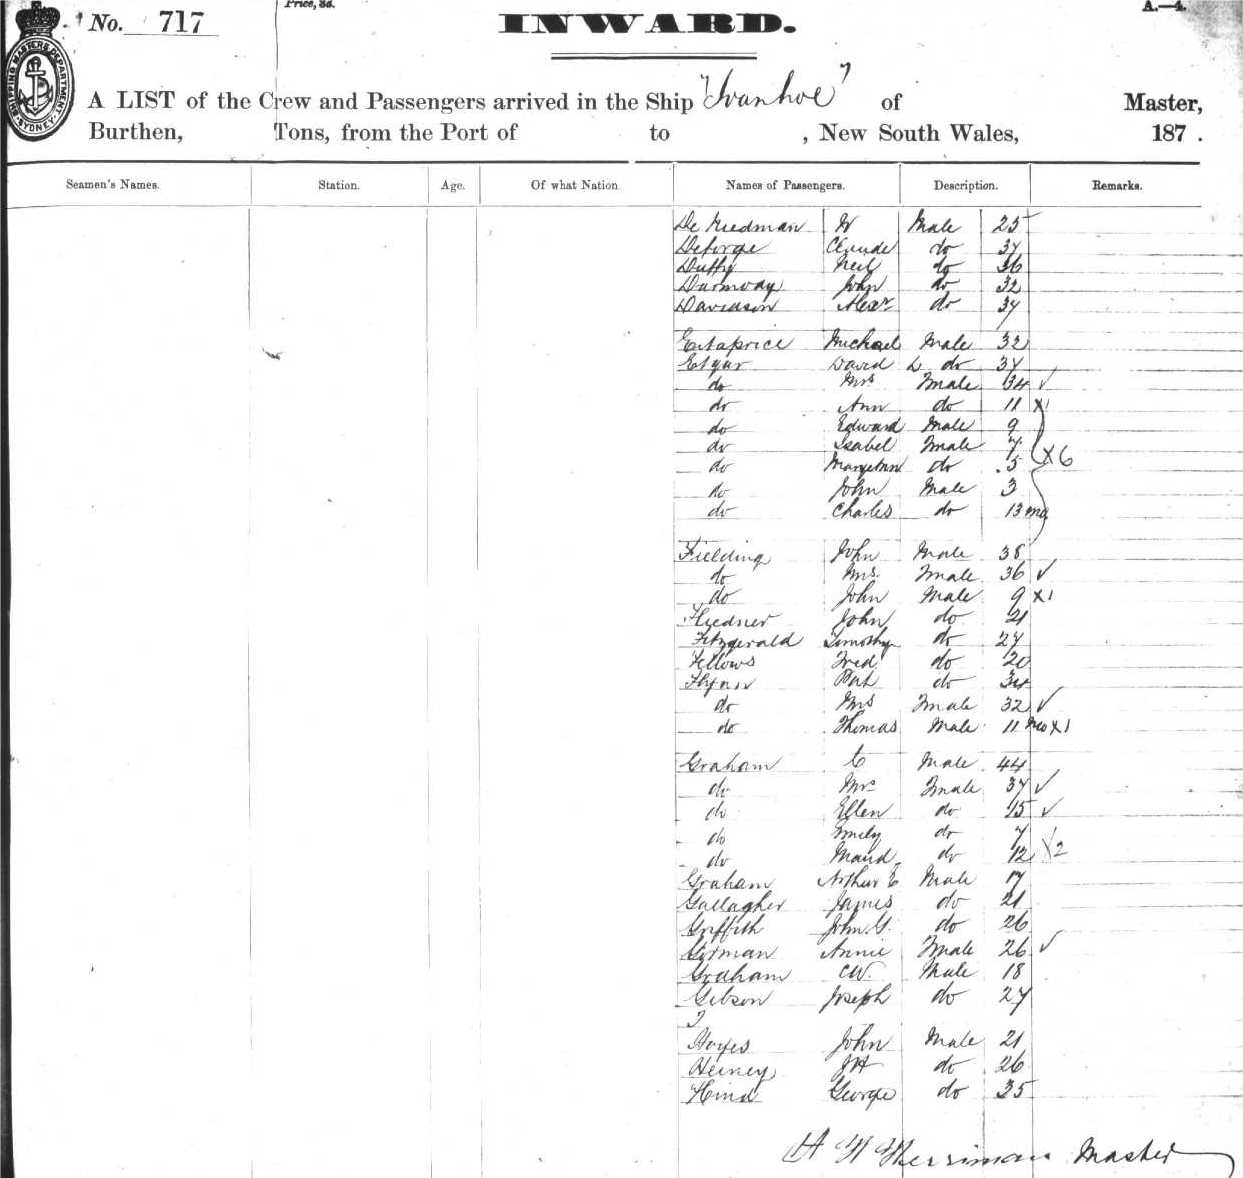 Price, 3d.
A.—4.
No. 717
INWARD.
SHIPPING MASTERS DEPARTMENT
SYDNEY
A LIST of the Crew and Passengers arrived in the Ship "Ivanhoe" of Master,
Burthen, Tons, from the Port of to , New South Wales, 187 .
Seamen's Names. Station. Age. Of what Nation Names of Passengers. Description. Remarks.
W Male 25
Deforge Claude do 37
Duffy Neil do 36
Darmody John do 32
Davidson Alexr do 37
Michael Male 32
Edgar David L do 37
do Mrs Fmale 34 ✓
do Ann do 11 x1
do Edward Male 9
do Isabel Fmale 7 x6
do do 5
do John Male 3
do Charles do 13 mo
Fielding John Male 38
do Mrs. Fmale 36 ✓
do John Male 9 x1
Fliedner John do 21
Fitzgerald Timothy do 27
Fellows Fred do 20
Flynn Pat do 34
do Mrs Fmale 32 ✓
do Thomas Male 11 mo x1
Graham C Male 44
do Mrs Fmale 37 ✓
do Ellen do 15 ✓
do Emily do 7
do Maud do 12 x2
Graham Arthur E Male 17
Gallagher James do 21
Griffith John G. do 26
Gorman Annie Fmale 26 ✓
Graham CW. Male 18
Gibson Joseph do 27
Hoyes John Male 21
Heiney JH do 26
Hind George do 35
Merriman Master